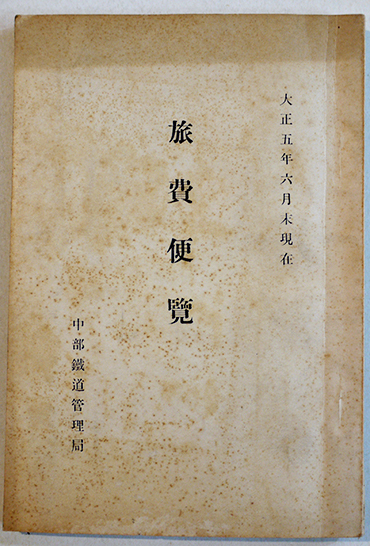 大正五年六月末現在
旅費便覽
中部鐵道管理局